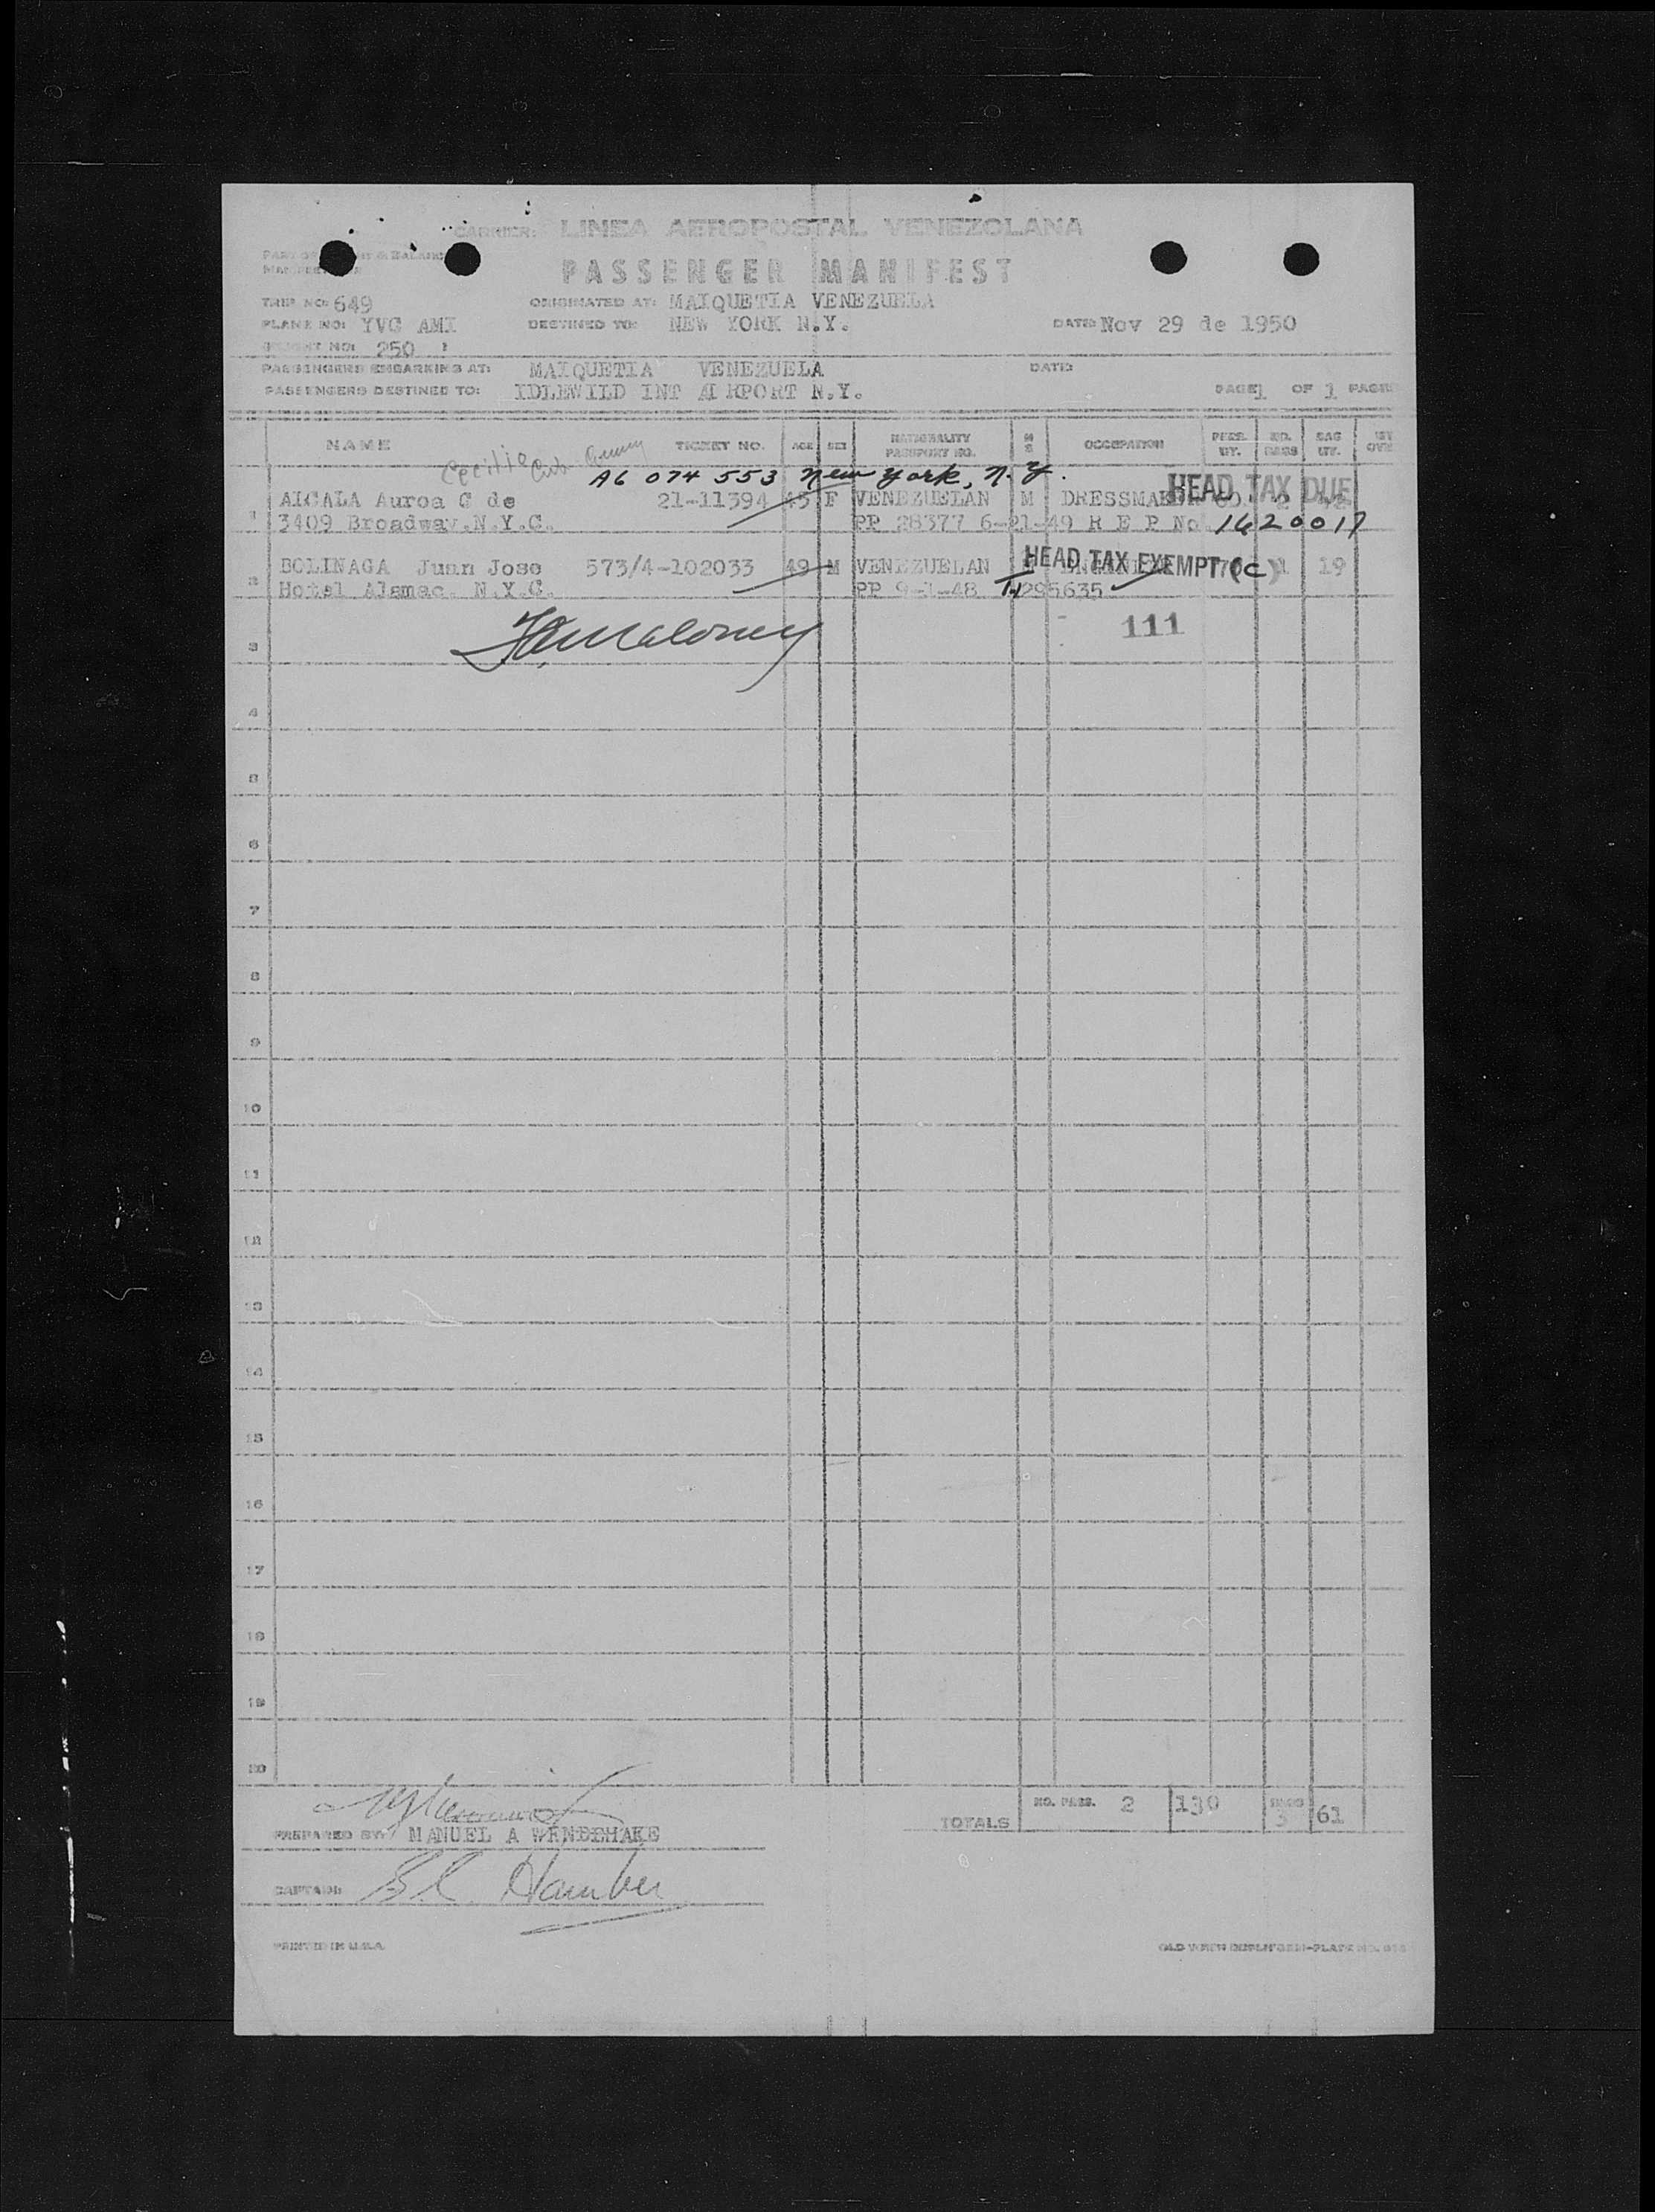 CARRIER: LINEA AEROPOSTAL VENEZOLANA
PASSENGER MANIFEST
TRIP NO: 649 ORIGINATED AT: MAIQUETIA VENEZUELA
PLANE NO: YVC AMI DESTINED TO: NEW YORK N.Y. DATE: Nov 29 de 1950
NO: 250
PASSENGERS EMBARKING AT: MAIQUETIA VENEZUELA DATE:
PASSENGERS DESTINED TO: IDLEWILD INT AIRPORT N.Y. PAGE 1 OF 1 PAGES
NAME TICKET NO. AGE SEX NATIONALITY PASSPORT NO. M S OCCUPATION PERS. WT. NO. BAGS BAG WT.
A6 074 553 New York, N.Y. HEAD TAX DUE
1 ALCALA Auroa C de 21-11394 45 F VENEZUELAN M DRESSMAKER 60 2 42
3409 Broadway.N.Y.C. PP 28377 6-21-49 R E P No 1620017
2 BOLINAGA Juan Jose 573/4-102033 49 M VENEZUELAN HEAD TAX EXEMPT (C) 1 19
Hotel Alamac N.Y.C. PP 9-1-48 295635
3 111
4
5
6
7
8
9
10
11
12
13
14
15
16
17
18
19
20
TOTALS NO. PASS. 2 130 BAGS 3 61
PREPARED BY: MANUEL A WENDEHAKE
CAPTAIN:
PRINTED IN U.S.A.